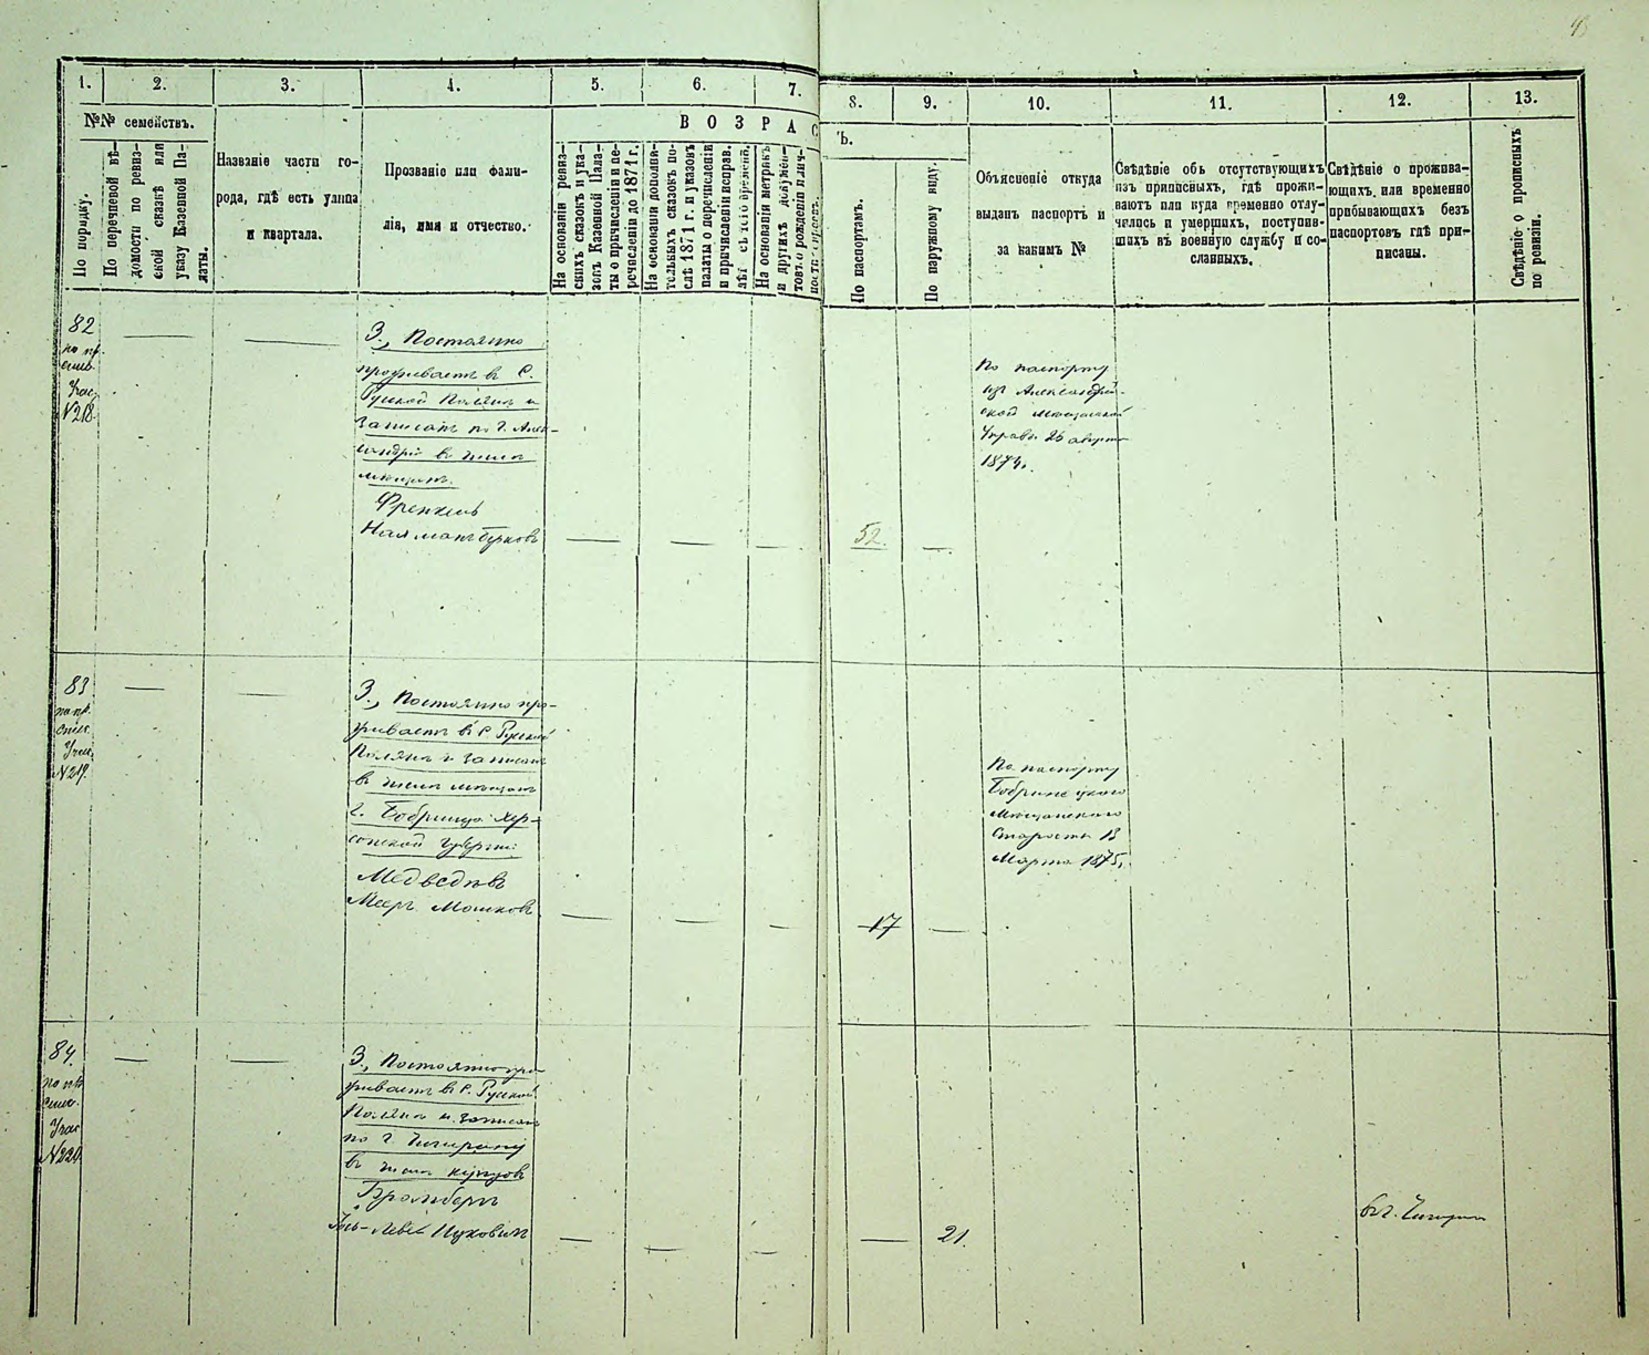 1. 2. 3. 4. 5. 6. 7. 8. 9. 10. 11. 12. 13.
№№ семействъ.
По порядку.
По перечневой вѣ-
домости по ревиз-
ской сказкѣ или
указу Казенной Па-
латы.
Названіе части го-
рода, гдѣ есть улица
и квартала.
Прозваніе или фами-
лія, имя и отчество.
ВОЗРАС
Ъ.
На основаніи ревиз-
скихъ сказокъ и ука-
зовъ Казенной Пала-
ты о причисленіи и пе-
речисленіи до 1871 г.
На основаніи дополни-
тельныхъ сказокъ по-
слѣ 1871 г. и указовъ
палаты о перечисленіи
и причисленіи исправ.
лѣт съ того времени.
На основаніи метрикъ
и другихъ докумен-
товъ о рожденіи и лич-
По паспортамъ.
По наружному виду.
Объясненіе откуда
выданъ паспортъ и
за какимъ №
Свѣдѣніе объ отсутствующихъ
изъ приписныхъ, гдѣ прожи-
ваютъ или куда временно отлу-
чились и умершихъ, поступив-
шихъ въ военную службу и со-
сланныхъ.
Свѣдѣніе о прожива-
ющихъ или временно
прибывающихъ безъ
паспортовъ гдѣ при-
писаны.
Свѣдѣніе о прописныхъ
по ревизіи.
82
по пр.
спис.
Учас
№218.
3., Постоянно
проживаетъ въ С.
Русской Полянѣ и
записанъ по г. Алек-
сандріи въ числѣ
мѣщанъ.
Френкель
52.
По паспорту
изъ Александрій-
ской мѣщанской
Управы 25 августа
1874.
83
по пр.
спис.
Учас.
№219.
3., Постоянно про-
живаетъ въ С. Русской
Полянѣ и записанъ
въ числѣ мѣщанъ
г. Бобринца Хер-
сонской Губерніи:
Медведевъ
Мееръ Мошковъ
17
По паспорту
Бобринецкаго
Мѣщанскаго
Старосты 18
Марта 1875.
84.
по пр.
спис.
Учас
№220.
3., Постоянно про-
живаетъ въ С. Русской
Полянѣ и записанъ
по г. Чигирину
въ числѣ купцовъ
Бромбергъ
21.
въ г. Чигиринѣ